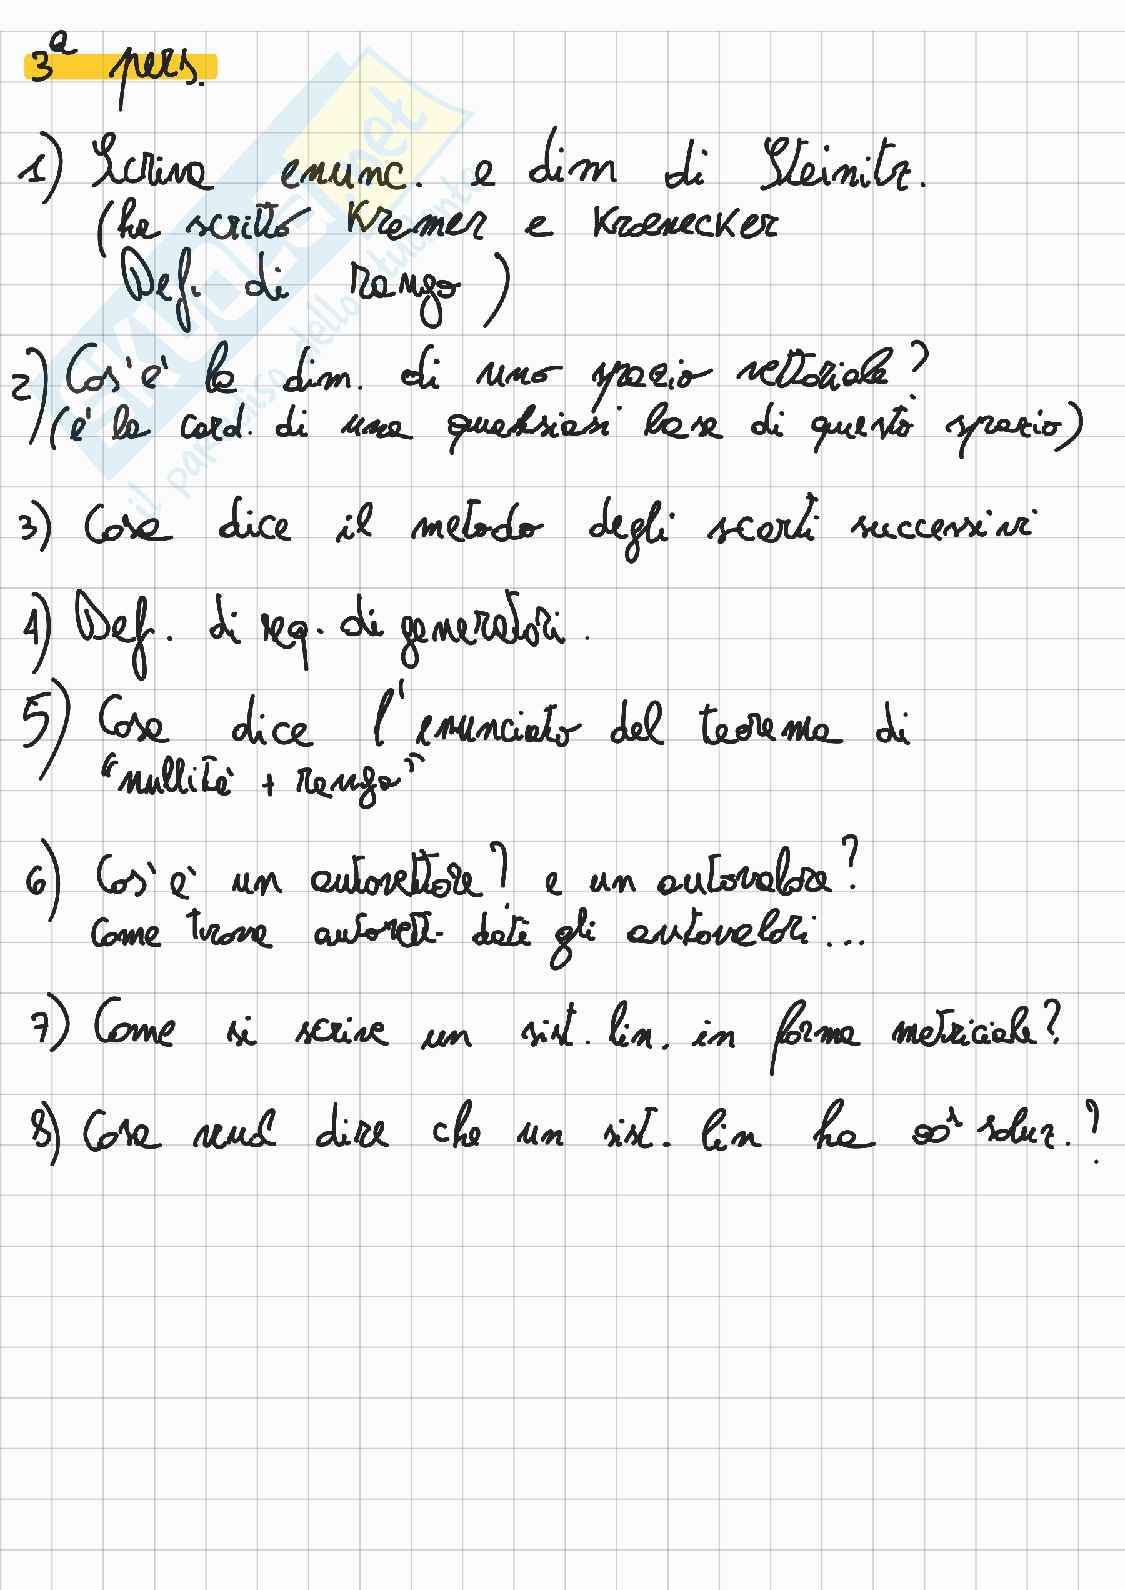 3ª pers.
1) Scriva enunc. e dim di Steinitz.
(ha scritto Kremer e Kronecker
Def. di rango)
2) Cos'è la dim. di uno spazio vettoriale?
(è la card. di una qualsiasi base di questo spazio)
3) Cosa dice il metodo degli scarti successivi
4) Def. di seq. di generatori.
5) Cosa dice l'enunciato del teorema di
"nullità + rango"
6) Cos'è un autovettore? e un autovalore?
Come trova autovett. dati gli autovalori...
7) Come si scrive un sist. lin. in forma matriciale?
8) Cosa vuol dire che un sist. lin ha ∞¹ soluz.?
skuola.net
il paradiso dello studente